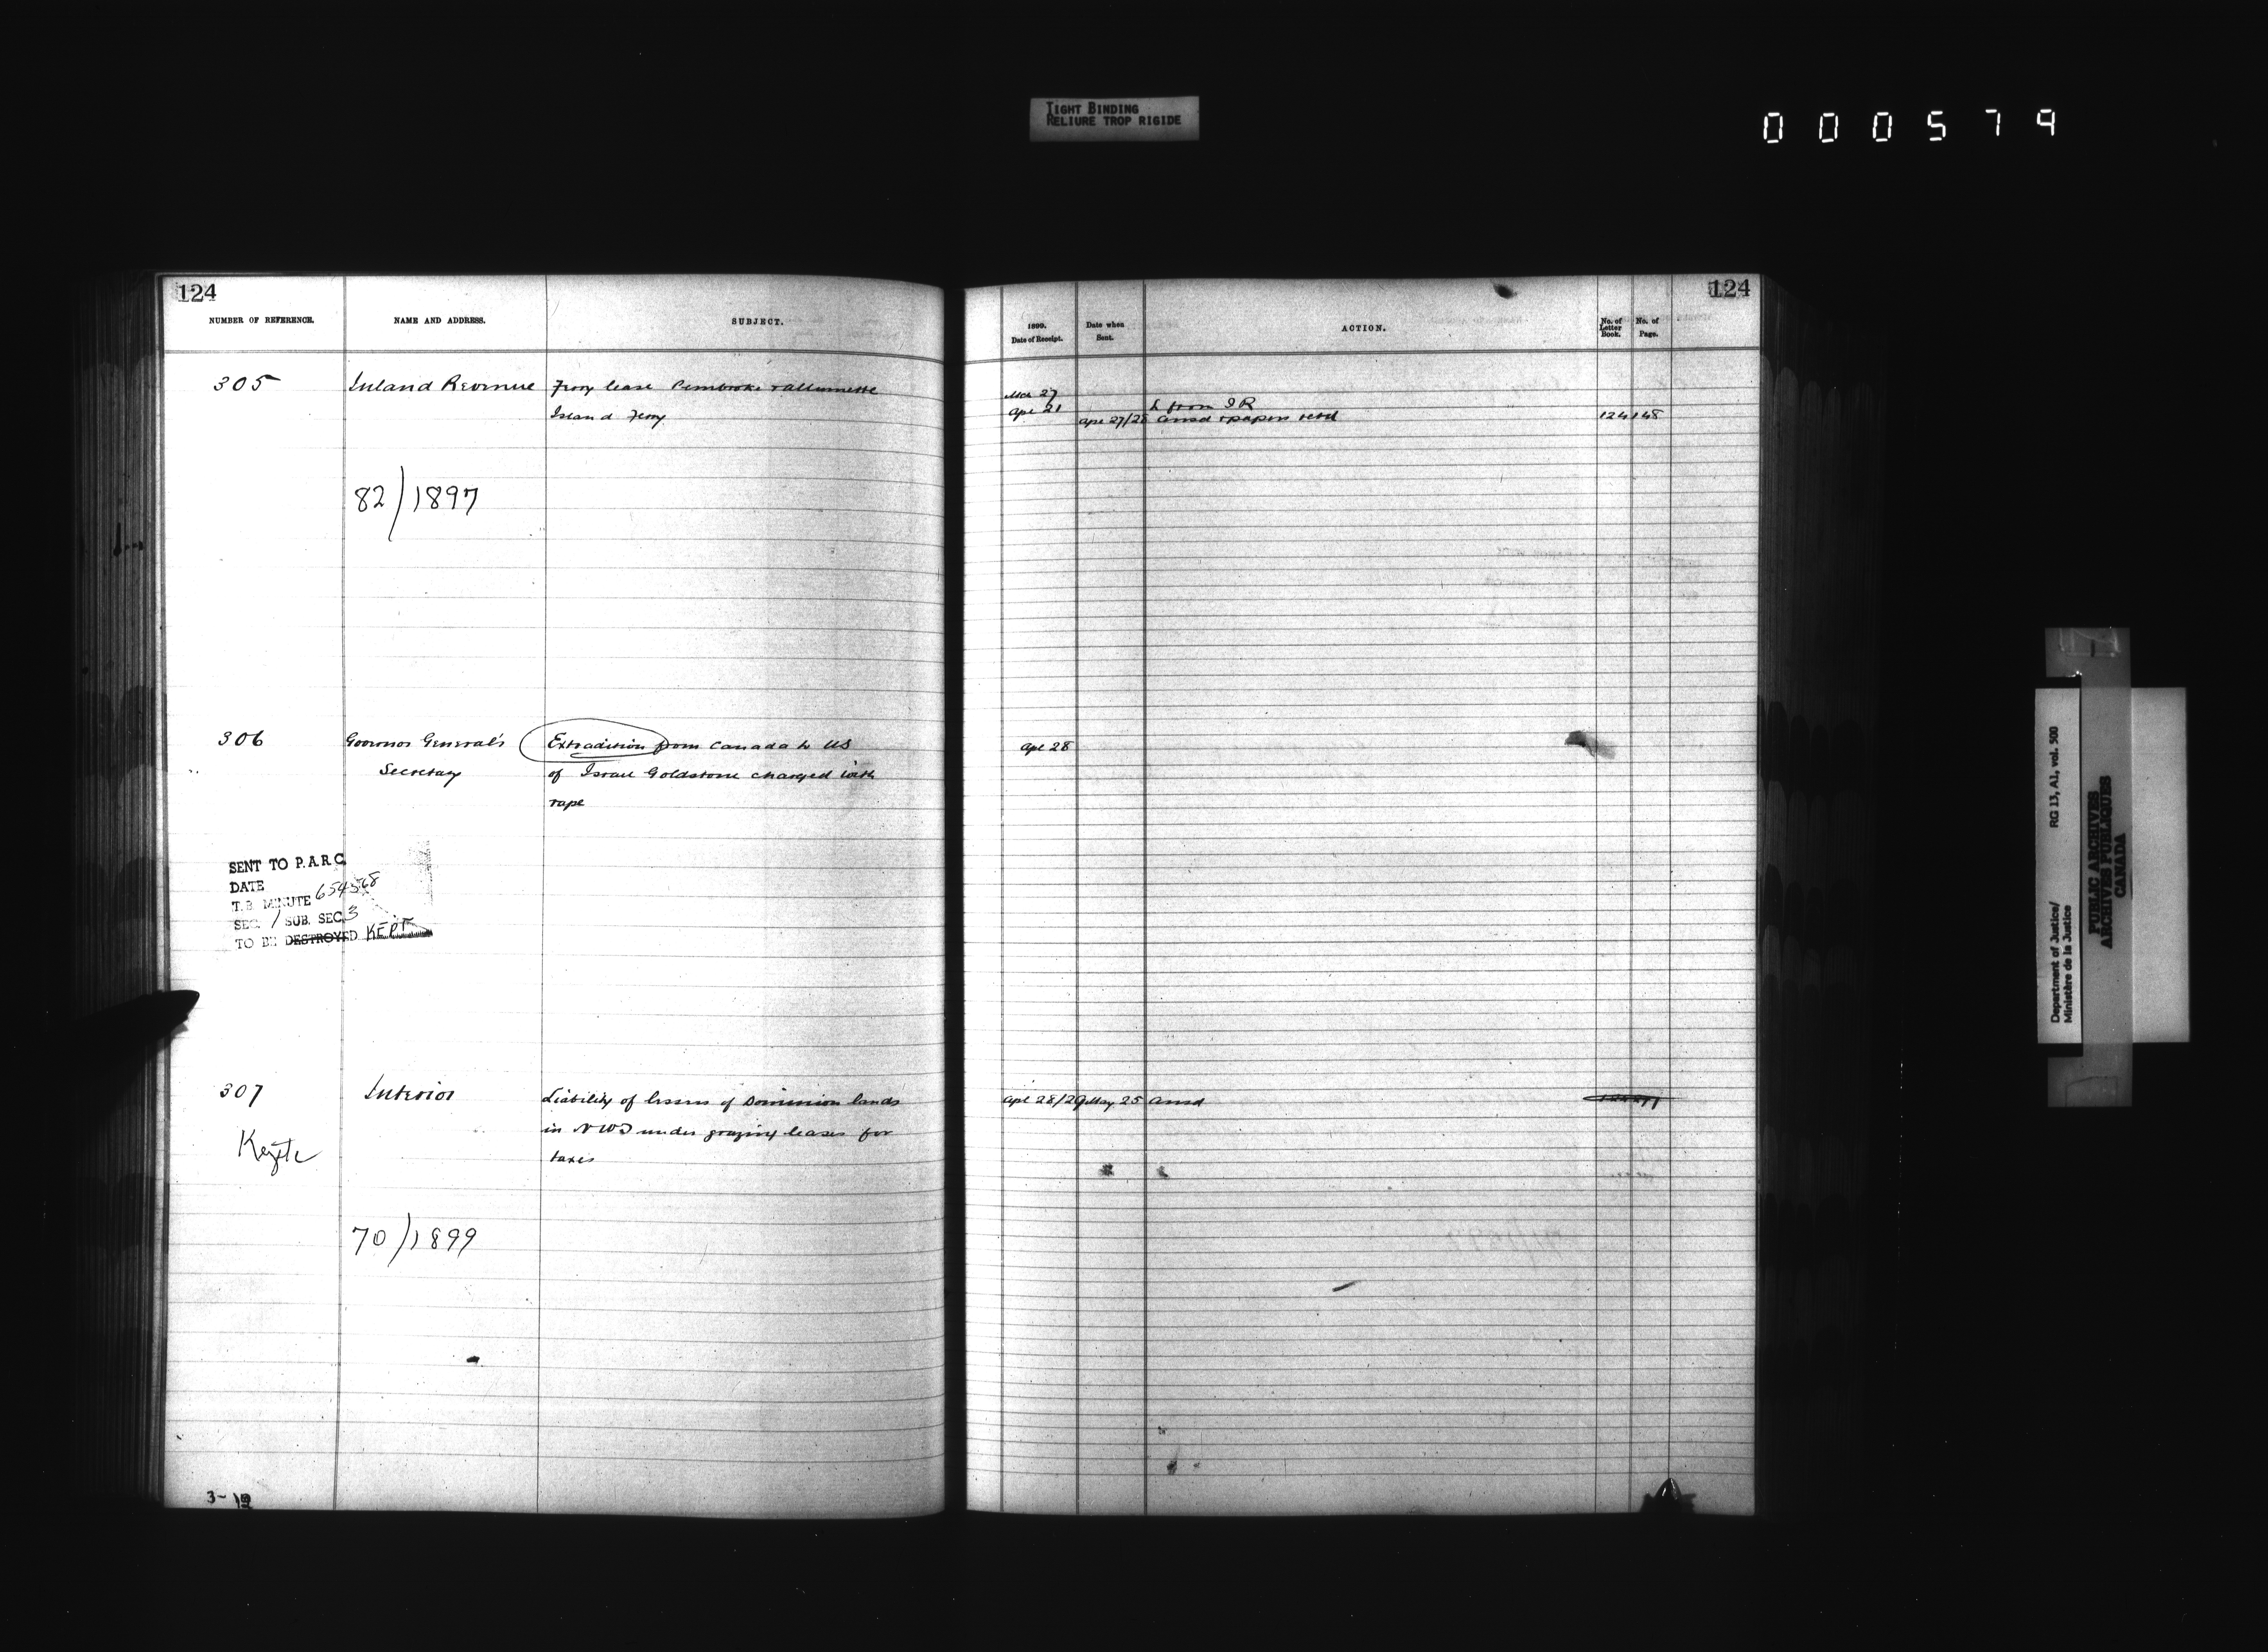 TIGHT BINDING
RELIURE TROP RIGIDE
000579
124
NUMBER OF REFERENCE.
NAME AND ADDRESS.
SUBJECT.
305
Inland Revenue
Ferry lease Pembroke & Allumette
Island Ferry
82/1897
306
Governor General's
Secretary
Extradition from Canada to US
of Israel Goldstone charged with
rape
SENT TO P.A.R.C.
DATE
T.B. MINUTE 654568
SEC. 1 SUB. SEC. 3
TO BE DESTROYED KEPT
307
Interior
Liability of lessees of Dominion lands
in NWT under grazing leases for
taxes
70/1899
3-
124
1899.
Date of Receipt.
Date when
Sent.
ACTION.
No. of
Letter
Book.
No. of
Page.
Mch 27
Apl 21
L from IR
Apl 27/28
Ansd & papers retd
124 148
Apl 28
Apl 28/29
May 25
Ansd
Department of Justice/
Ministère de la Justice
RG 13, A1, vol. 500
PUBLIC ARCHIVES
ARCHIVES PUBLIQUES
CANADA